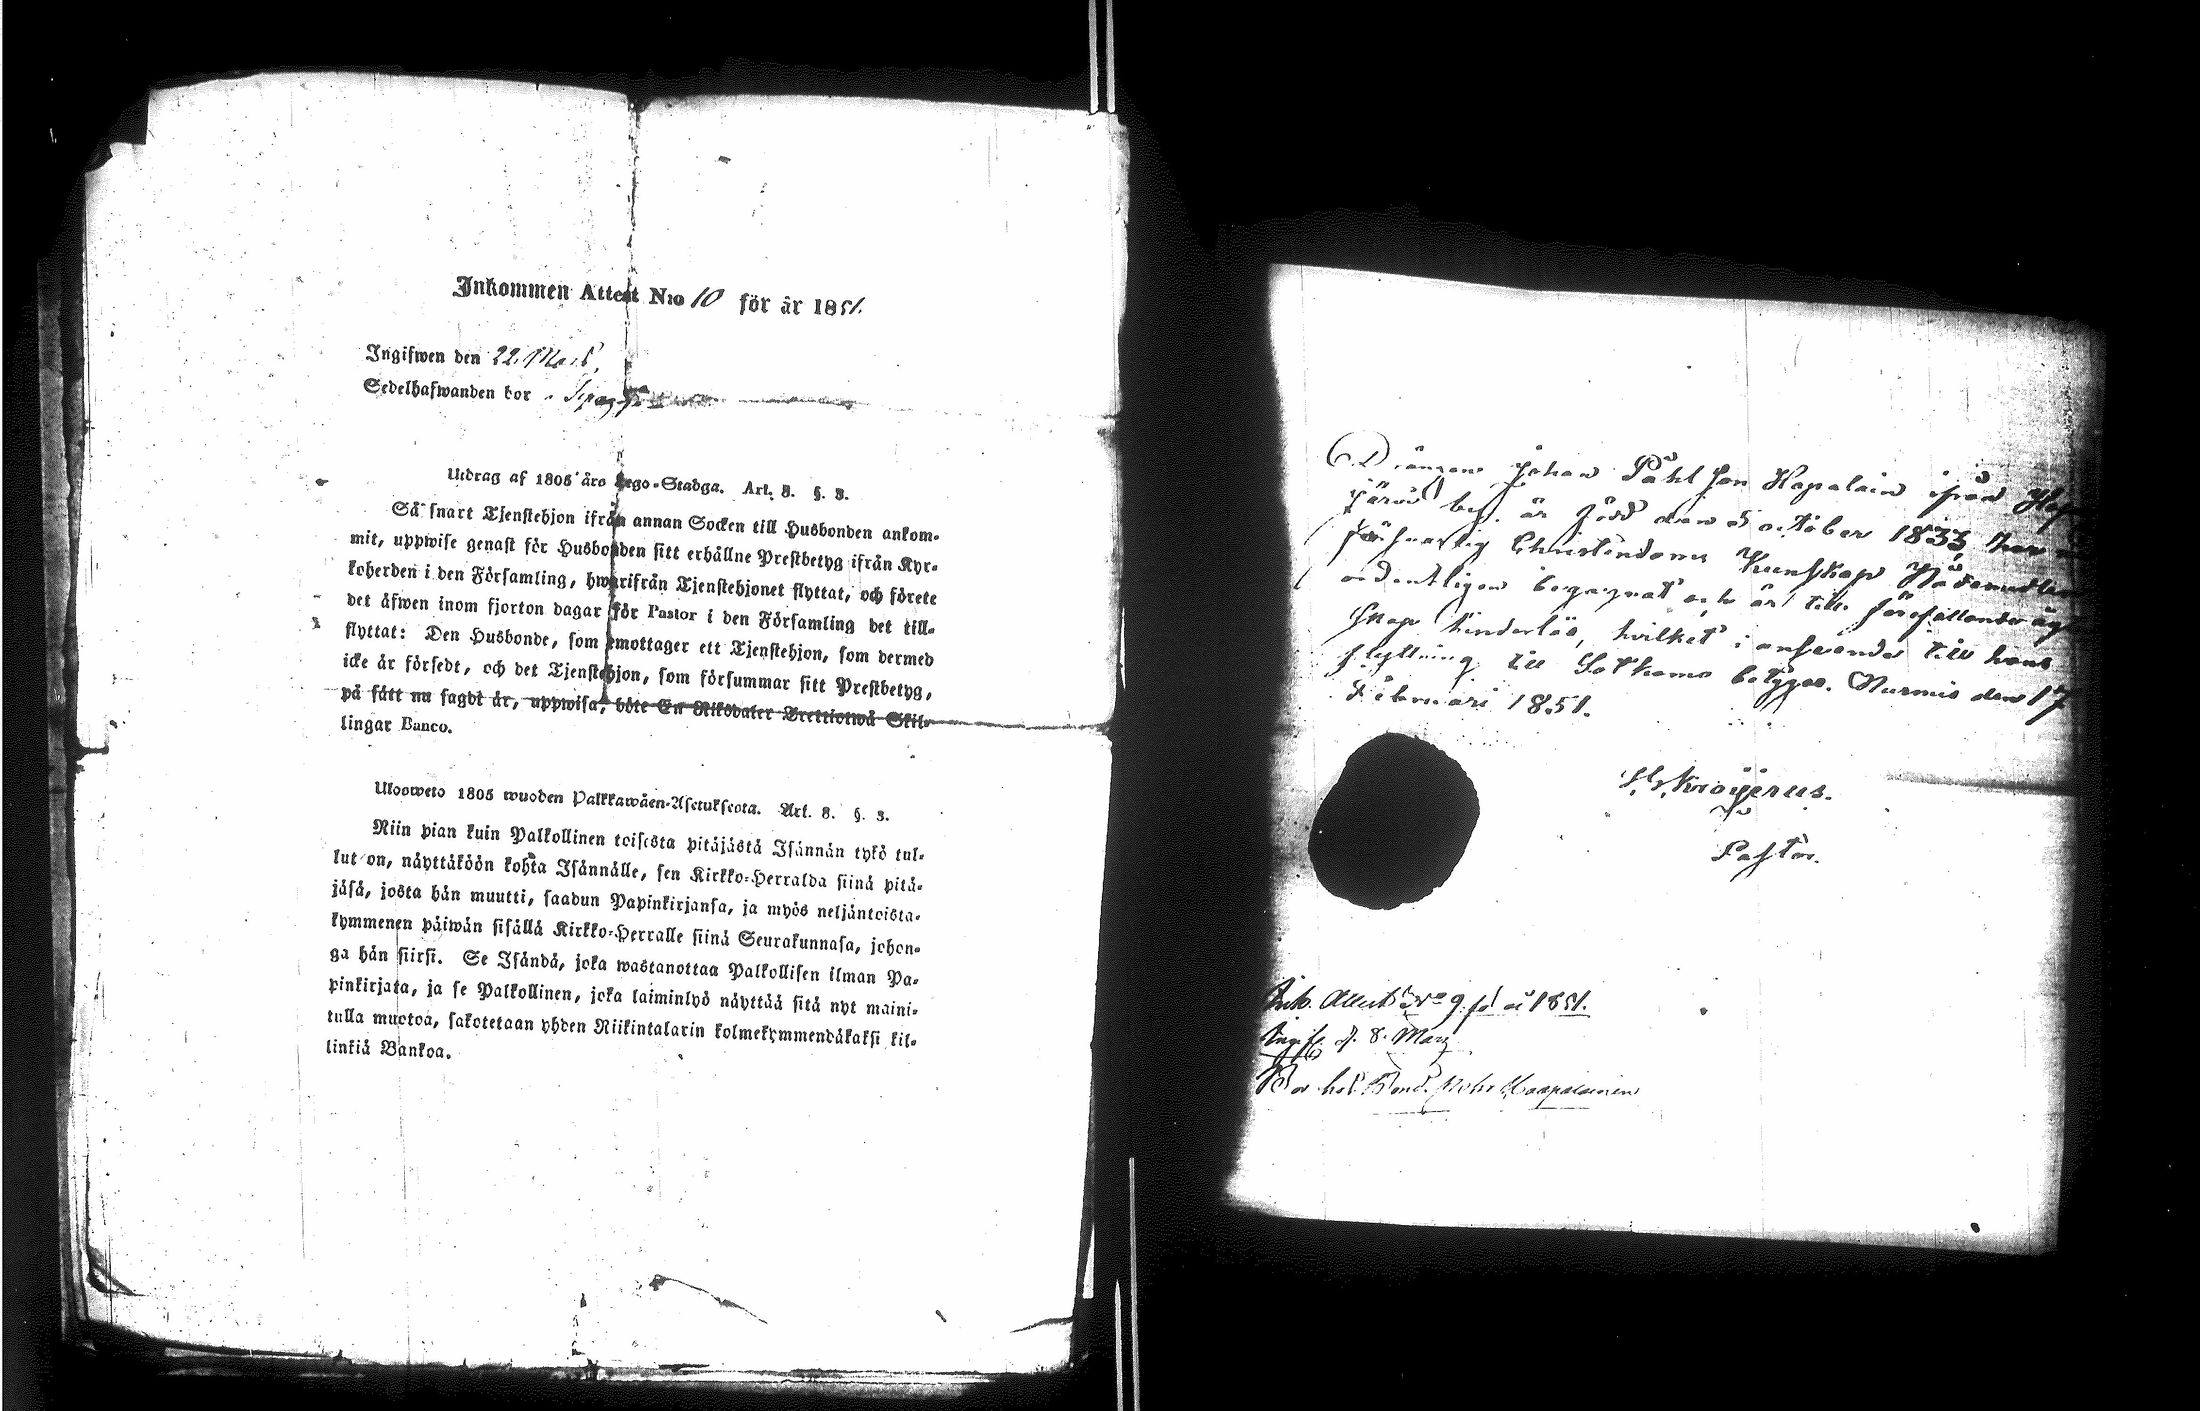 Inkommen Attest N:ro 10 för år 1851.
Ingifwen den 22. Mars,
Sedelhafwanden bor
Utdrag af 1805 års Lego-Stadga. Art. 3. §. 3.
Så snart Tjenstehjon ifrån annan Socken till Husbonden ankom-
mit, uppwise genast för Husbonden sitt erhållne Prestbetyg ifrån Kyr-
koherden i den Församling, hwarifrån Tjenstehjonet flyttat, och förete
det äfwen inom fjorton dagar för Pastor i den Församling det till-
flyttat: Den Husbonde, som emottager ett Tjenstehjon, som dermed
icke är försedt, och det Tjenstehjon, som försummar sitt Prestbetyg,
på sått nu sagdt är, uppwisa, böte En Riksdaler Trettiotwå Skil-
lingar Banco.
Ulosweto 1805 wuoden Palkkawäen-Asetuksesta. Art. 3. §. 3.
Niin pian kuin Palkollinen toisesta pitäjästä Isännän tykö tul-
lut on, näyttäköön kohta Isännälle, sen Kirkko-Herralda siinä pitä-
jäsä, josta hän muutti, saadun Papinkirjansa, ja myös neljäntoista-
kymmenen päiwän sisällä Kirkko-Herralle siinä Seurakunnasa, johon-
ga hän siirsi. Se Isändä, joka wastanottaa Palkollisen ilman Pa-
pinkirjata, ja se Palkollinen, joka laiminlyö näyttää sitä nyt maini-
tulla muotoa, sakotetaan yhden Riikintalarin kolmekymmendäkaksi kil-
linkiä Bankoa.
Drängen Johan Påhl son Kapalain ifrån
järvi by, är född den 5 october 1833, har
försvarlig Christendoms Kunskap Nådemedlen
ordentligen begagnat och är till förefallande äg
skap hinderlös, hvilket i anseende till hans
flyttning till Sotkamo betygas. Nurmis den 17
Februari 1851.
Kröyerus.
Pastor.
Ink. Attest N:o 9 för år 1851.
Ingif. d. 8. Mars
Bor hos Bond. Haapalainen